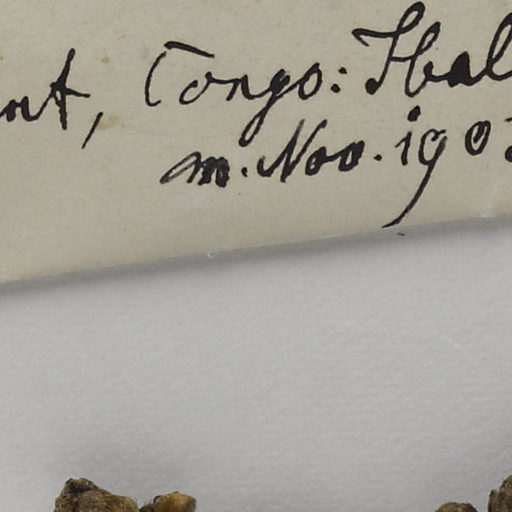 nt, Congo: Ibal
m. Nov. 190